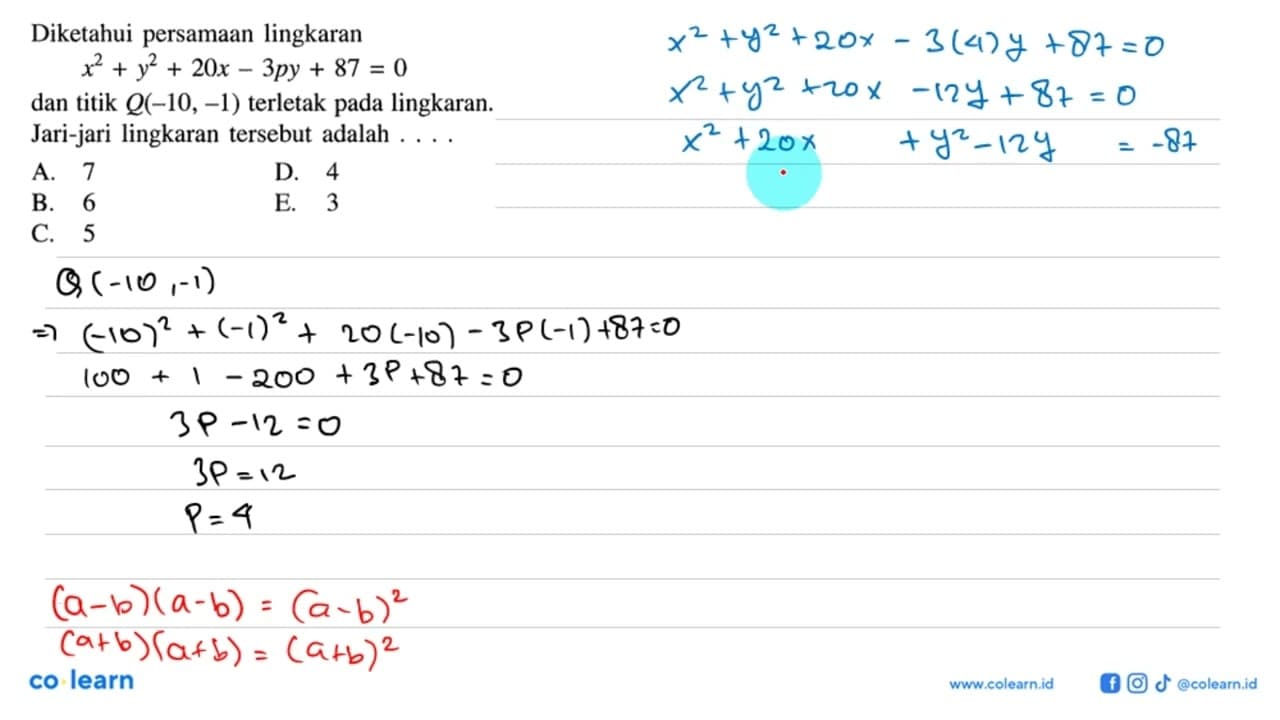 Diketahui persamaan lingkaran
x² + y² + 20x – 3py + 87 = 0
dan titik Q(–10, –1) terletak pada lingkaran.
Jari-jari lingkaran tersebut adalah . . . .
A. 7 D. 4
B. 6 E. 3
C. 5
Q(-10,-1)
⇒ (-10)² + (-1)² + 20(-10) - 3P(-1)+87=0
100 + 1 - 200 + 3P+87=0
3P-12=0
3P=12
P=4
(a-b)(a-b) = (a-b)²
(a+b)(a+b) = (a+b)²
x² + y² + 20x - 3(4)y + 87 = 0
x² + y² + 20x - 12y + 87 = 0
x² + 20x + y² - 12y = -87
co·learn
www.colearn.id @colearn.id